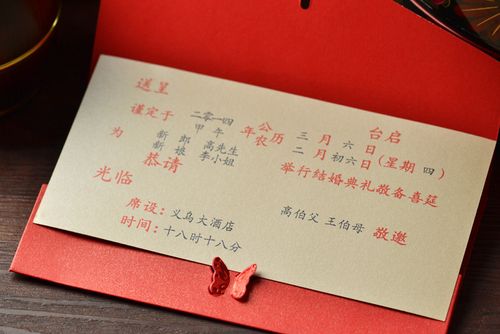 送呈 台启
谨定于 二零一四 年 公历 三月六日
甲午 农历 二月初六日(星期四)
为 新郎 高先生 举行结婚典礼敬备喜筵
新娘 李小姐
恭请
光临 高伯父 王伯母 敬邀
席设:义乌大酒店
时间:十八时十八分